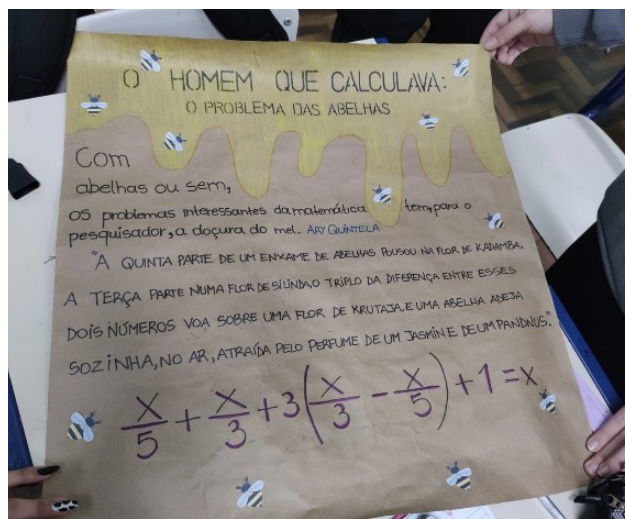 O HOMEM QUE CALCULAVA:
O PROBLEMA DAS ABELHAS
Com
abelhas ou sem,
os problemas interessantes da matemática tem, para o
pesquisador, a doçura do mel. ARY QUINTELA
"A QUINTA PARTE DE UM ENXAME DE ABELHAS POUSOU NA FLOR DE KADAMBA,
A TERÇA PARTE NUMA FLOR DE SILINDA, O TRIPLO DA DIFERENÇA ENTRE ESSES
DOIS NÚMEROS VOA SOBRE UMA FLOR DE KRUTAJA, E UMA ABELHA ADEJA
SOZINHA, NO AR, ATRAÍDA PELO PERFUME DE UM JASMIN E DE UM PANDNUS."
x/5 + x/3 + 3(x/3 - x/5) + 1 = x